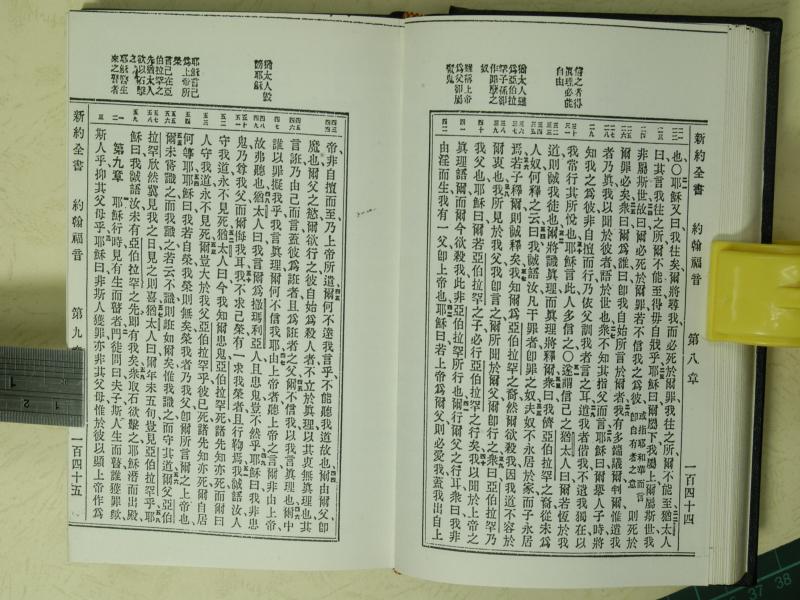 新約全書 約翰福音 第八章 一百四十四
信之者得眞理必能自由
猶太人雖爲亞伯拉罕子孫卻作罪孽之奴
雖稱上帝爲父卻屬魔鬼
也〇耶穌又曰我往矣爾將尋我而必死於爾罪我往之所爾不能至猶太人
曰其言我往之所爾不能至得毋自戕乎耶穌曰爾屬下我屬上爾屬斯世我
非屬斯世故曰爾必死於爾罪若不信我之爲彼 或指耶和華而言卽自有者之意 則死於
爾罪必矣衆曰爾爲誰曰卽我自始所言於爾者我有多端議爾判爾惟遣我
者乃眞我以聞於彼者語於世也衆不知其指父而言耶穌曰爾舉人子時將
知我之爲彼非自擅而行乃依父訓我者言之耳遣我者偕我不遺我獨在以
我常行其所悅也耶穌言此人多信之〇遂謂信己之猶太人曰爾若恆於我
道則誠我徒也爾將識眞理而眞理將釋爾衆曰我儕亞伯拉罕之裔從未爲
人奴何釋之云曰我誠語汝凡干罪者卽罪之奴夫奴不永居於家而子永居
焉若子釋爾則誠釋矣我知爾爲亞伯拉罕之裔然爾欲殺我因我道不容於
爾衷也我所見於我父我卽言之爾所聞於爾父爾卽行之衆曰亞伯拉罕乃
我父也耶穌曰爾若亞伯拉罕之子必行亞伯拉罕之行矣我以聞於上帝之
眞理語爾而爾今欲殺我此非亞伯拉罕所行也爾行爾父之行耳衆曰我非
由淫而生我有一父卽上帝也耶穌曰若上帝爲爾父則必愛我蓋我出自上
新約全書 約翰福音 第九 一百四十五
猶太人毀謗耶穌
耶穌言己爲上帝所榮
言己在亞伯拉罕之先猶太人欲以石擊之
耶穌醫生來之瞽者
帝非自擅而至乃上帝所遣爾何不達我言乎不能聽我道故也爾由爾父卽
魔也爾父之慾爾欲行之彼自始爲殺人者不立於眞理以其衷無眞理也其
言誑乃由己而言蓋彼爲誑者且爲誑者之父爾不信我以我言眞理也爾中
誰以罪擬我乎我言眞理爾何不信我耶由上帝者聽上帝之言爾非由上帝
故弗聽也猶太人曰我言爾爲撒瑪利亞人且患鬼豈不然乎耶穌曰我非患
鬼乃尊我父而爾侮我耳我不求己榮有一求我榮者且行鞫焉我誠語汝人
守我道永不見死猶太人曰今我知爾患鬼亞伯拉罕死諸先知亦死而爾曰
人守我道永不見死爾豈大於我父亞伯拉罕乎彼已死諸先知亦死爾自居
何等耶耶穌曰我若自榮我榮則無矣榮我者乃我父卽爾所言爾之上帝也
爾未嘗識之而我識之若云不識則誑如爾矣惟我識之而守其道爾父亞伯
拉罕欣然冀見我之日見之則喜猶太人曰爾年未五旬豈見亞伯拉罕乎耶
穌曰我誠語汝未有亞伯拉罕之先卽有我矣衆取石欲擊之耶穌潛而出殿
第九章 耶穌行時見有生而瞽者門徒問曰夫子斯人生而瞽誰獲罪歟
斯人乎抑其父母乎耶穌曰非斯人獲罪亦非其父母惟於彼以顯上帝作爲